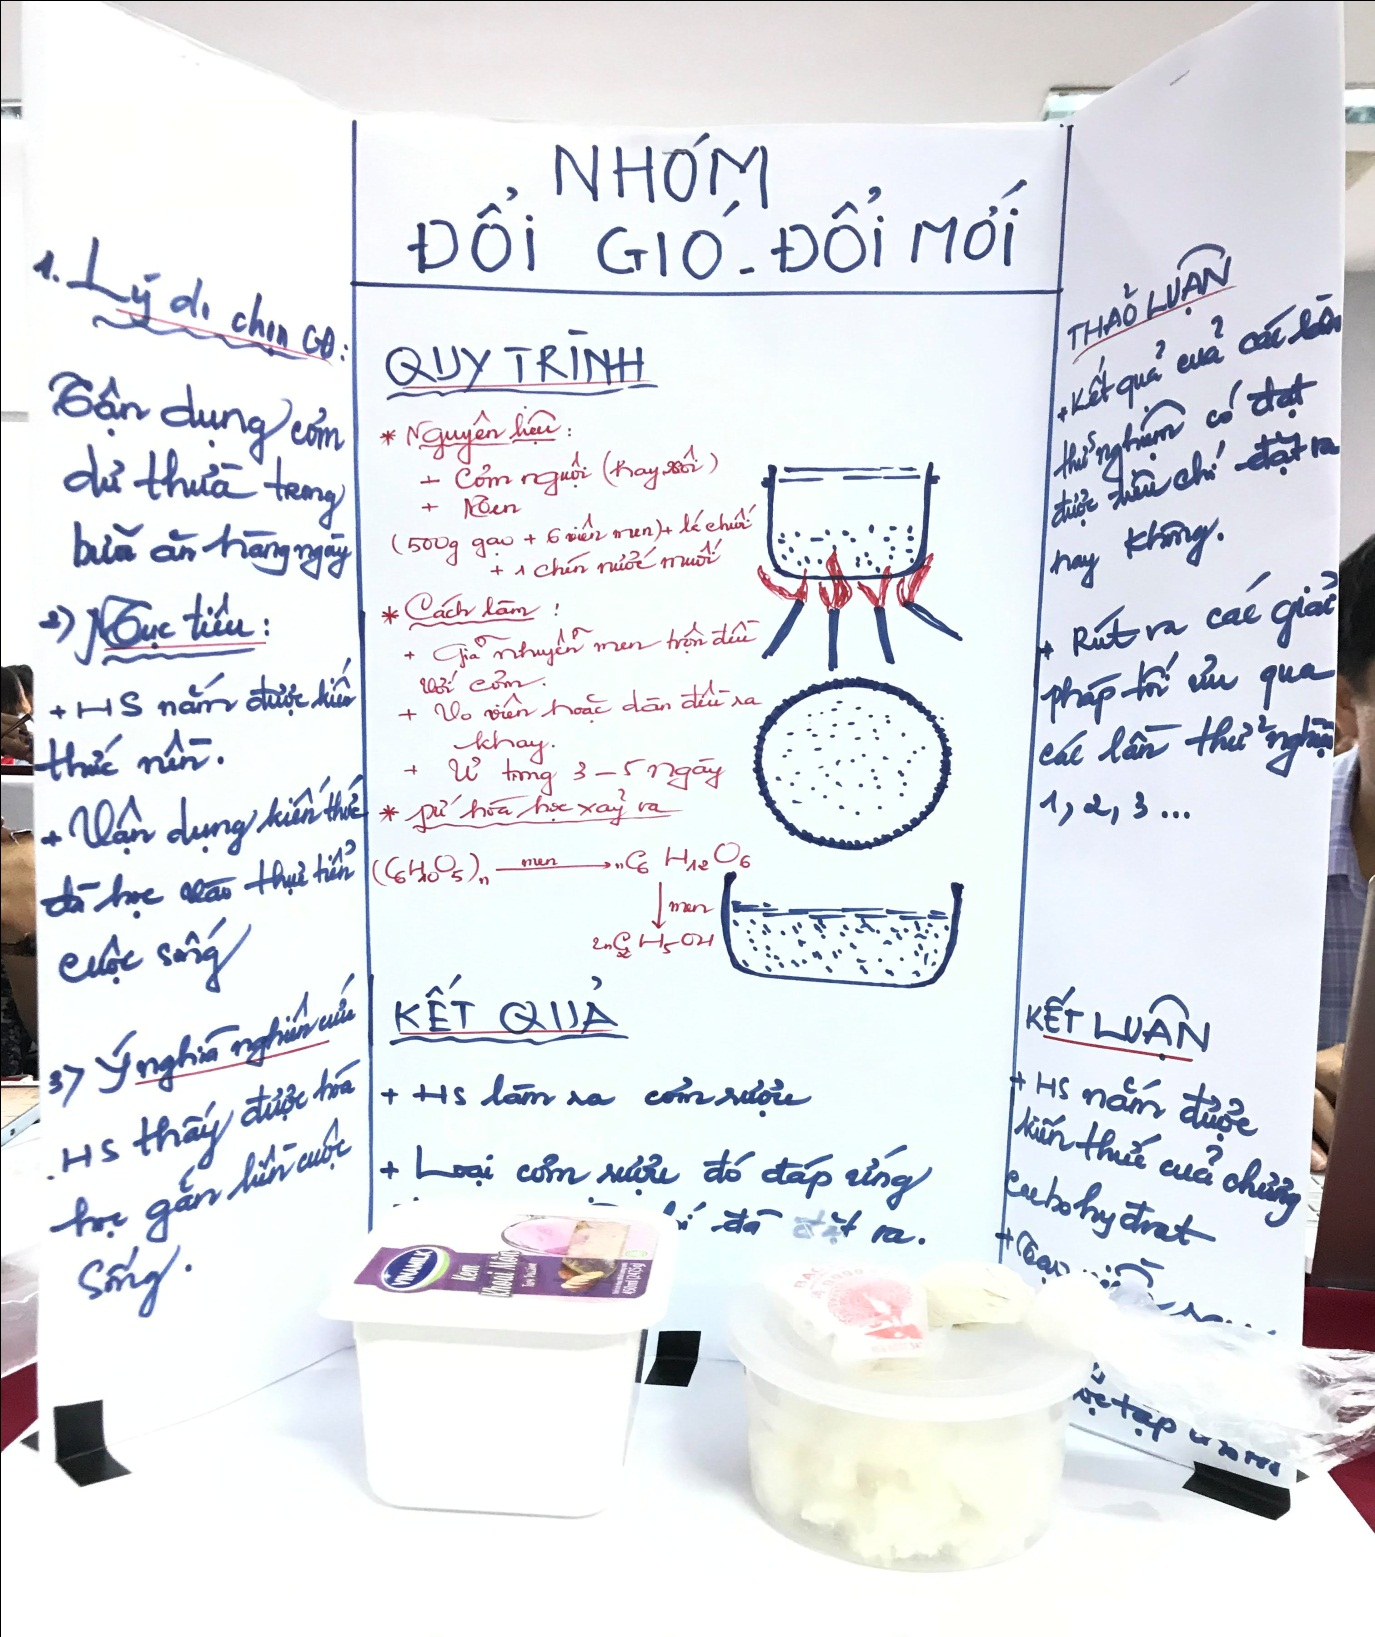 NHÓM
ĐỔI GIÓ - ĐỔI MỚI
1. Lý do chọn CĐ:
Tận dụng cơm
dư thừa trong
bữa ăn hàng ngày
2) Mục tiêu:
+ HS nắm được kiến
thức nền.
+ Vận dụng kiến thức
đã học vào thực tiễn
cuộc sống
3) Ý nghĩa nghiên cứu
. HS thấy được hoá
học gắn liền cuộc
sống.
QUY TRÌNH
* Nguyên liệu:
+ Cơm nguội (hay xôi)
+ Men
(500g gạo + 6 viên men) + lá chuối
+ 1 chén nước muối
* Cách làm:
+ Giã nhuyễn men trộn đều
với cơm.
+ Vo viên hoặc dàn đều ra
khay.
+ Ủ trong 3 - 5 ngày
* pứ hóa học xảy ra
(C6H10O5)n men → nC6H12O6
↓ men
2nC2H5OH
KẾT QUẢ
+ HS làm ra cơm rượu
+ Loại cơm rượu đó đáp ứng
đã đặt ra.
THẢO LUẬN
+ Kết quả của các lần
thử nghiệm có đạt
được tiêu chí đặt ra
hay không.
+ Rút ra các giải
pháp tối ưu qua
các lần thử nghiệm
1, 2, 3 ...
KẾT LUẬN
+ HS nắm được
kiến thức của chương
cacbohyđrat
+ Tạo
tập
VINAMILK
Kem
Khoai Môn
450ml (245g)